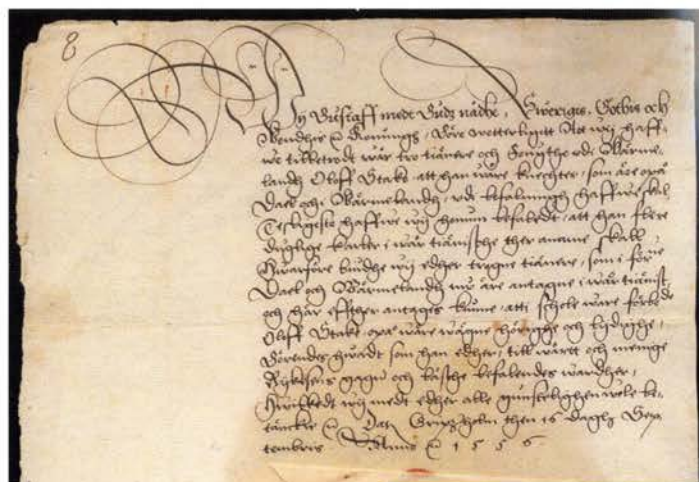 8
Wij Gustaff medt Gudz nåde, Sweriges, Gothis och
Wendhis etc Konungh, Göre wetterligitt Att wij haff-
we tilltrodt wår tro tiänere och Foughte udi Wärme-
landh Oloff Stake att han wåre knechter, som äre opå
Dael och i Wärmelandh, udi befalningh haffwe skal,
Tesligeste haffwe wij honum befaledt, att han flere
duglige karler i wår tiänisthe ther anname skall
Hwarföre biudhe wij edher trogne tiänere, som i förne
Dael och Wärmelandh nu äre antagne i wår tiänist
och här effther antages kunne, atti schole ware förbede
Oloff Stake, opå wåre wägne hörighe och lydighe,
Görendes hwadt som han edher, till wårtt och menige
Rijkesens gagn och bäste befalendes wardher,
Hwilkedt wij medt edher alle gunstelighen wele be-
täncke etc Dat Gripzholm then 16 dagh Sep
tembris Anno etc 1556.